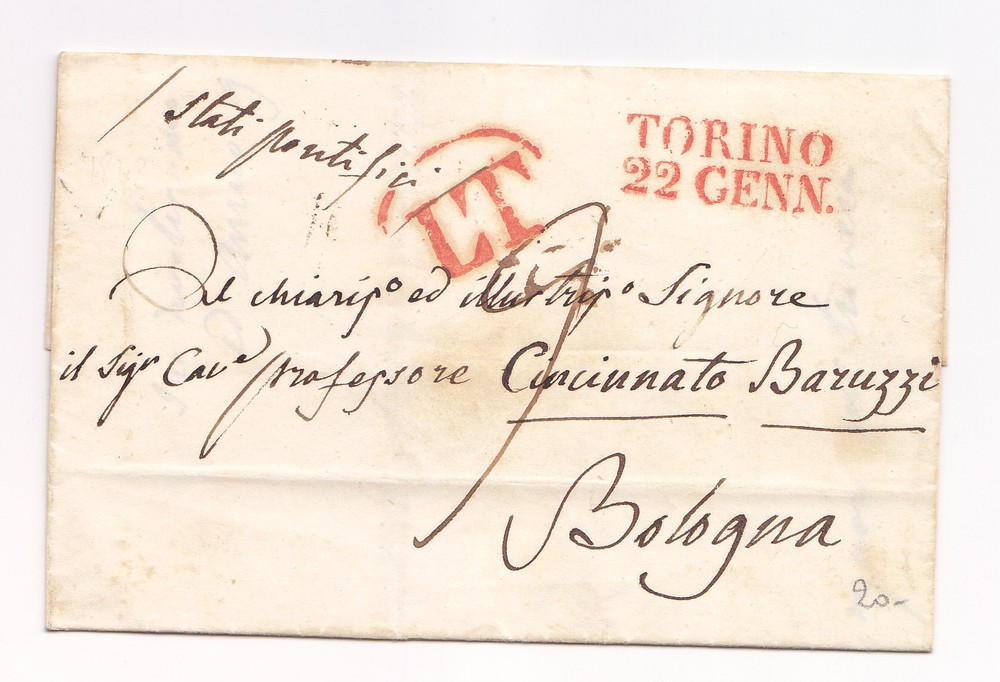 Stati pontifici
TORINO
22 GENN.
LT
Al chiaris.º ed illustris.º Signore
il Sigr Cave professore Cincinnato Baruzzi
Bologna
20-